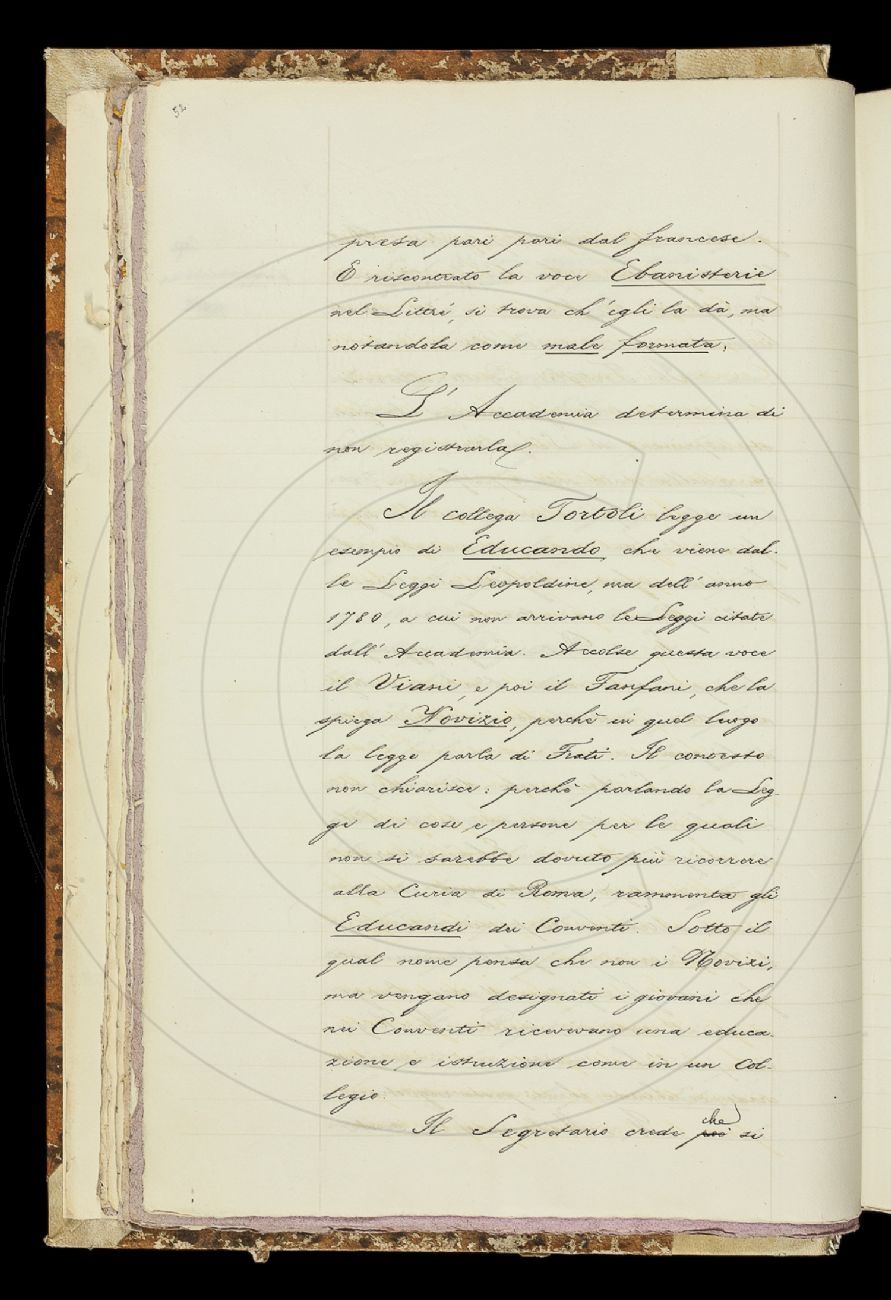 52
presa pari pari dal francese.
E riscontrato la voce Ebanisterie
nel Littré, si trova ch'egli la dà, ma
notandola come male formata.
L'Accademia determina di
non registrarla.
Il collega Tortoli legge un
esempio di Educando, che viene dal-
le Leggi Leopoldine, ma dell'anno
1780, a cui non arrivano le Leggi citate
dall'Accademia. Accolse questa voce
il Viani, e poi il Fanfani, che la
spiega Novizio, perchè in quel luogo
la legge parla di Frati. Il contesto
non chiarisce: perchè parlando la Leg-
ge di cose e persone per le quali
non si sarebbe dovuto più ricorrere
alla Curia di Roma, rammenta gli
Educandi dei Conventi. Sotto il
qual nome pensa che non i Novizi,
ma vengano designati i giovani che
nei Conventi ricevevano una educa-
zione e istruzione come in un Col-
legio.
Il Segretario crede che si